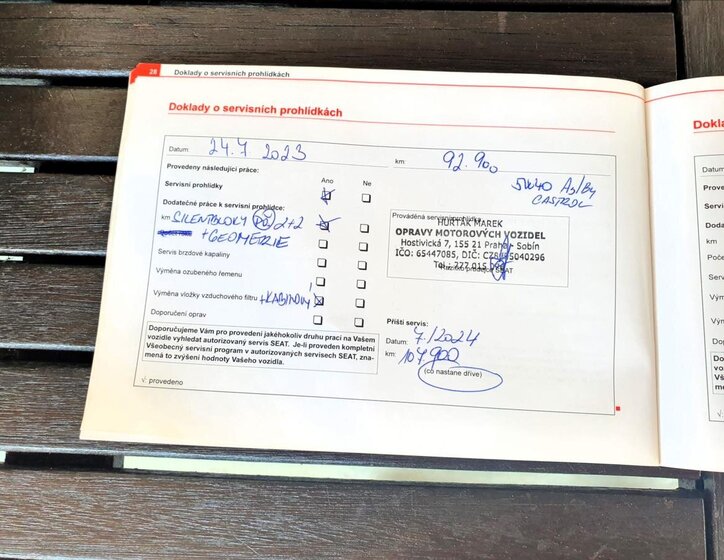 28 Doklady o servisních prohlídkách
Doklady o servisních prohlídkách
Datum: 24.7 2023 km: 92.900
Provedeny následující práce: Ano Ne
5W40 A3/B4
CASTROL
Servisní prohlídky
Dodatečné práce k servisní prohlídce:
km SILENTBLOKY 2+2
+GEOMETRIE
Servis brzdové kapaliny
Výměna ozubeného řemenu
Výměna vložky vzduchového filtru +KABINOVÝ
Doporučení oprav
Prováděná servisní prohlídka
HURTÁK MAREK
OPRAVY MOTOROVÝCH VOZIDEL
Hostivická 7, 155 21 Praha - Sobín
IČO: 65447085, DIČ:
Tel.: 277 015
Doporučujeme Vám pro provedení jakéhokoliv druhu prací na Vašem
vozidle vyhledat autorizovaný servis SEAT. Je-li proveden kompletní
Všeobecný servisní program v autorizovaných servisech SEAT, zna-
mená to zvýšení hodnoty Vašeho vozidla.
√: provedeno
Příští servis:
Datum: 7/2024
km: 107900
(co nastane dříve)
Datum